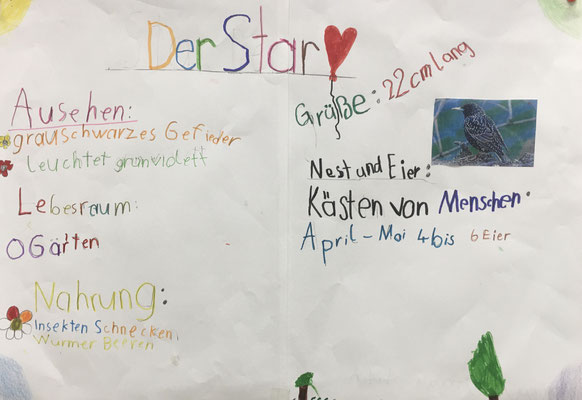 Der Star
Ausehen:
grauschwarzes Gefieder
leuchtet grünviolett
Lebesraum:
Gärten
Nahrung:
Insekten Schnecken,
Würmer Beeren
Größe: 22cm lang
Nest und Eier:
Kästen von Menschen.
April - Mai 4 bis 6 Eier